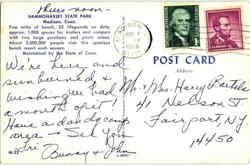 Thurs-noon-
HAMMONASSET STATE PARK
Madison, Conn.
Two miles of beach, 22 lifeguards on duty,
approx. 1,000 spaces for trailers and campers
with two large pavilions and picnic areas.
About 2,000,000 people visit the spacious
beach resort each season.
Maintained by the State of Conn.
POST CARD
Address
We're here and
sun burned, &
wishing we had
a month of it!
Have a dandy camp
area - See you
Fri
Bunny & John
Mr & Mrs. Harry Bartels
41 Nelson St
Fairport, N.Y.
14450